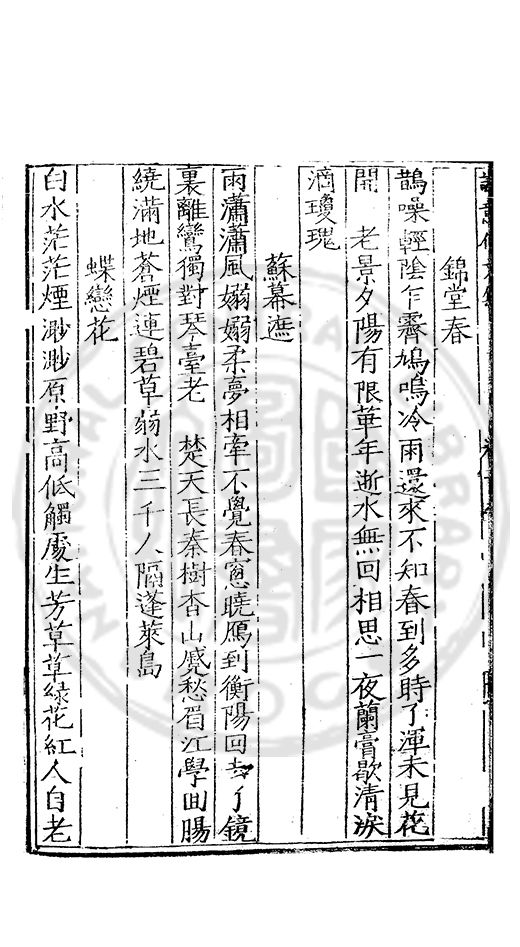 錦堂春
鵲噪輕陰乍霽鳩鳴冷雨還來不知春到多時了渾未見花
開　老景夕陽有限華年逝水無回相思一夜蘭膏歇清淚
滴瓊瑰
蘇幕遮
雨瀟瀟風嫋嫋柔夢相牽不覺春窻曉鴈到衡陽回去了鏡
裏離鸞獨對琴臺老　楚天長秦樹杳山蹙愁眉江學回腸
繞滿地蒼煙連碧草弱水三千人隔蓬萊島
蝶戀花
白水茫茫煙渺渺原野高低觸處生芳草草綠花紅人自老